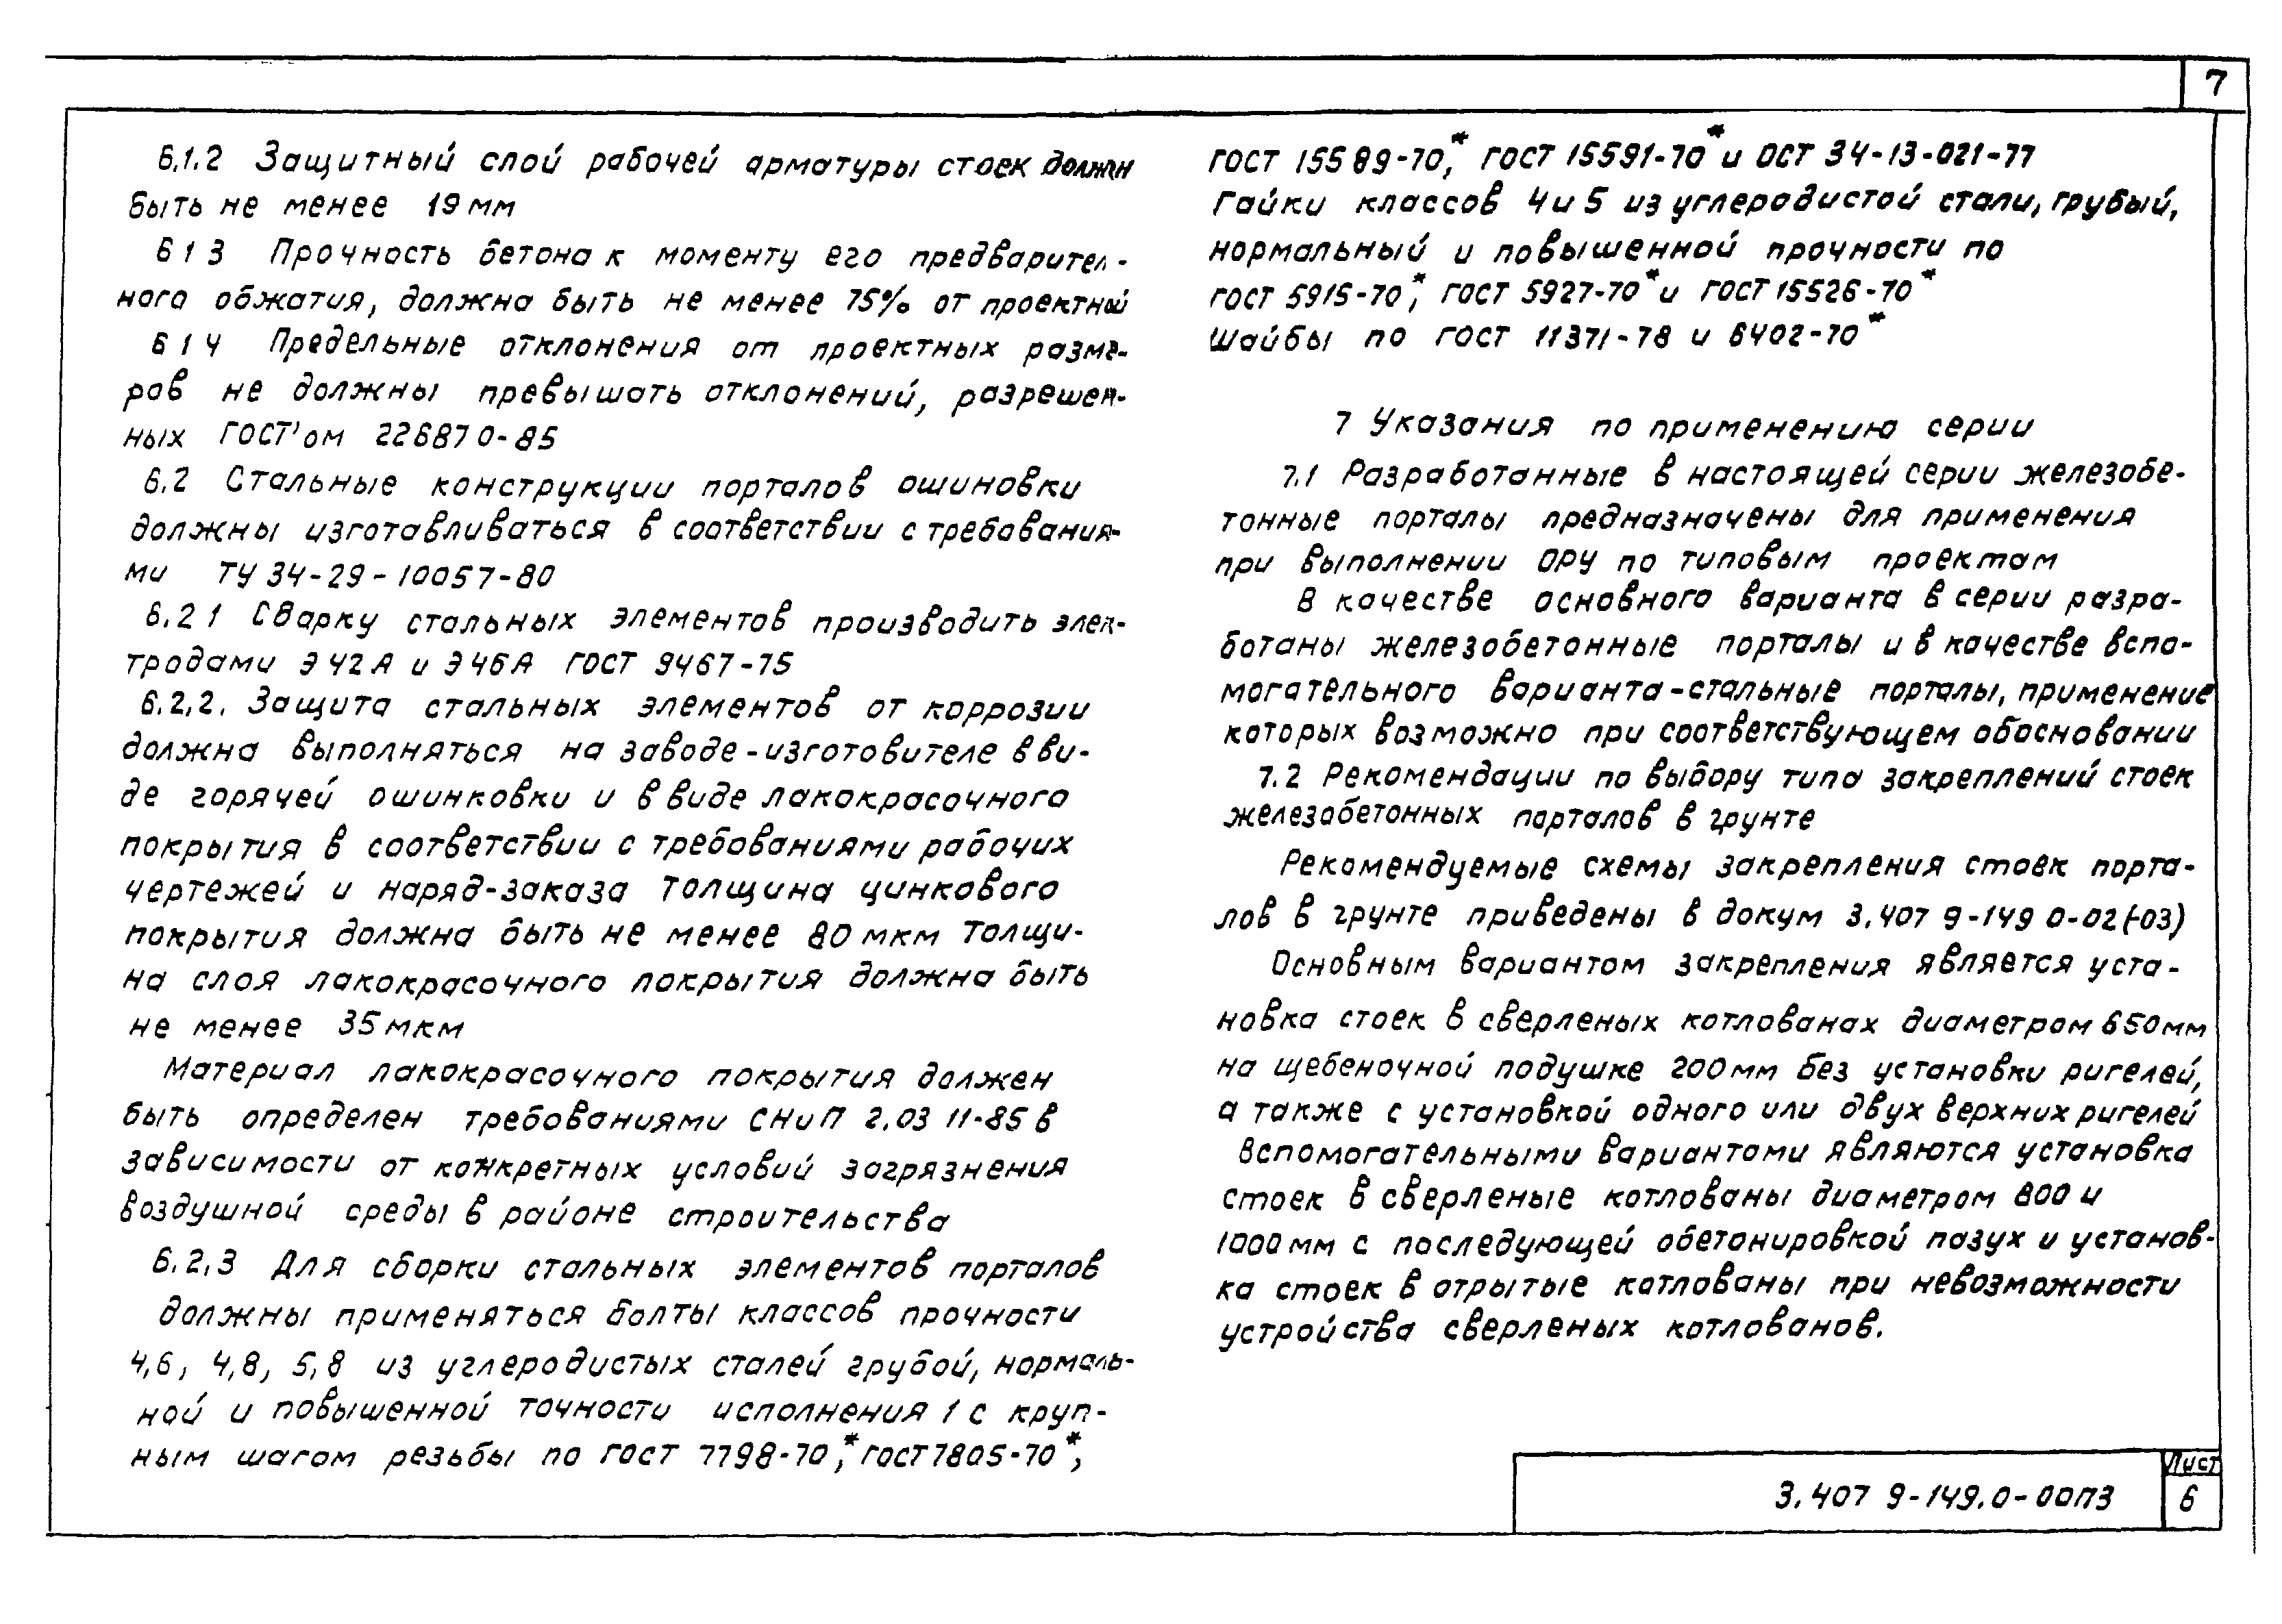 7
6.1.2 Защитный слой рабочей арматуры стоек должен
быть не менее 19 мм
6 1 3 Прочность бетона к моменту его предварител-
ного обжатия, должна быть не менее 75% от проектной
6 1 4 Предельные отклонения от проектных разме-
ров не должны превышать отклонений, разрешен-
ных ГОСТ'ом 22687 0-85
6.2 Стальные конструкции порталов ошиновки
должны изготавливаться в соответствии с требования-
ми ТУ 34-29-10057-80
6.2 1 Сварку стальных элементов производить элек-
тродами Э42А и Э46А ГОСТ 9467-75
6.2.2. Защита стальных элементов от коррозии
должна выполняться на заводе-изготовителе в ви-
де горячей ошинковки и в виде лакокрасочного
покрытия в соответствии с требованиями рабочих
чертежей и наряд-заказа Толщина цинкового
покрытия должна быть не менее 80 мкм Толщи-
на слоя лакокрасочного покрытия должна быть
не менее 35 мкм
Материал лакокрасочного покрытия должен
быть определен требованиями СНиП 2.03 11-85 в
зависимости от конкретных условий загрязнения
воздушной среды в районе строительства
6.2.3 Для сборки стальных элементов порталов
должны применяться болты классов прочности
4,6, 4,8, 5,8 из углеродистых сталей грубой, нормаль-
ной и повышенной точности исполнения 1 с круп-
ным шагом резьбы по ГОСТ 7798-70*, ГОСТ 7805-70*,
ГОСТ 15589-70*, ГОСТ 15591-70* и ОСТ 34-13-021-77
Гайки классов 4 и 5 из углеродистой стали, грубый,
нормальный и повышенной прочности по
ГОСТ 5915-70*, ГОСТ 5927-70* и ГОСТ 15526-70*
Шайбы по ГОСТ 11371-78 и 6402-70*
7 Указания по применению серии
7.1 Разработанные в настоящей серии железобе-
тонные порталы предназначены для применения
при выполнении ОРУ по типовым проектам
В качестве основного варианта в серии разра-
ботаны железобетонные порталы и в качестве вспо-
могательного варианта-стальные порталы, применение
которых возможно при соответствующем обосновании
7.2 Рекомендации по выбору типа закреплений стоек
железобетонных порталов в грунте
Рекомендуемые схемы закрепления стоек порта-
лов в грунте приведены в докум 3.407 9-149 0-02(-03)
Основным вариантом закрепления является уста-
новка стоек в сверленых котлованах диаметром 650мм
на щебеночной подушке 200мм без установки ригелей,
а также с установкой одного или двух верхних ригелей
Вспомогательными вариантами являются установка
стоек в сверленые котлованы диаметром 800 и
1000мм с последующей обетонировкой пазух и установ-
ка стоек в отрытые котлованы при невозможности
устройства сверленых котлованов.
3.407 9-149.0-00ПЗ
Лист
6